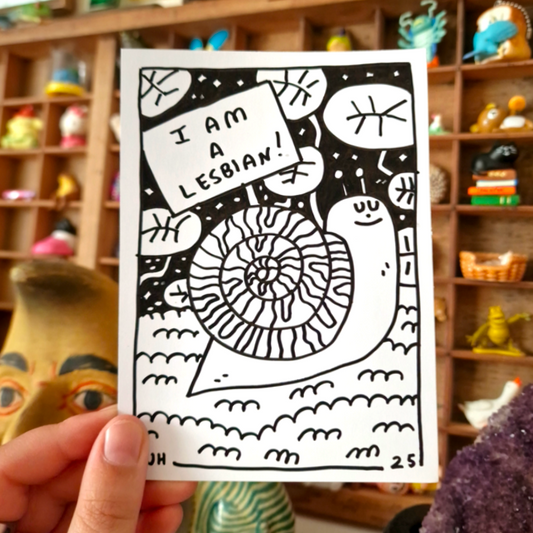 I AM
A
LESBIAN!
JH
25